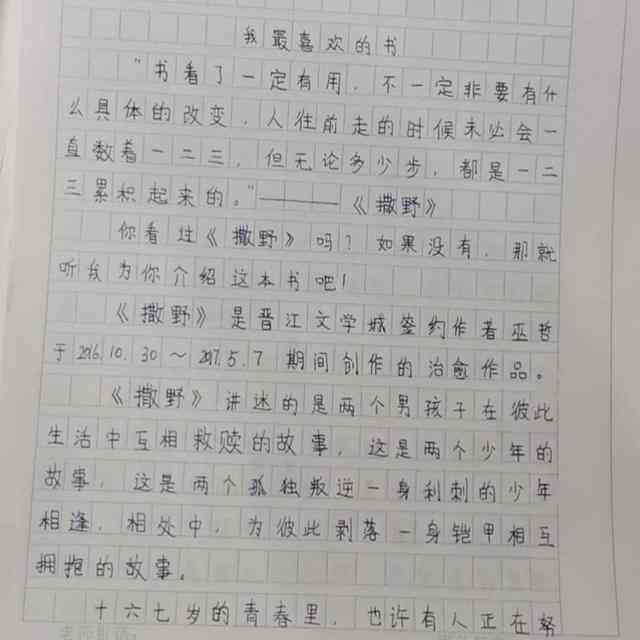 我最喜欢的书
“书看了一定有用，不一定非要有什
么具体的改变，人往前走的时候未必会一
直数着一二三，但无论多少步，都是一二
三累积起来的。”———《撒野》
你看过《撒野》吗？如果没有，那就
听我为你介绍这本书吧！
《撒野》是晋江文学城签约作者巫哲
于2016.10.30～2017.5.7期间创作的治愈作品。
《撒野》讲述的是两个男孩子在彼此
生活中互相救赎的故事，这是两个少年的
故事，这是两个孤独叛逆一身利刺的少年
相逢，相处中，为彼此剥落一身铠甲相互
拥抱的故事。
十六七岁的青春里，也许有人正在努